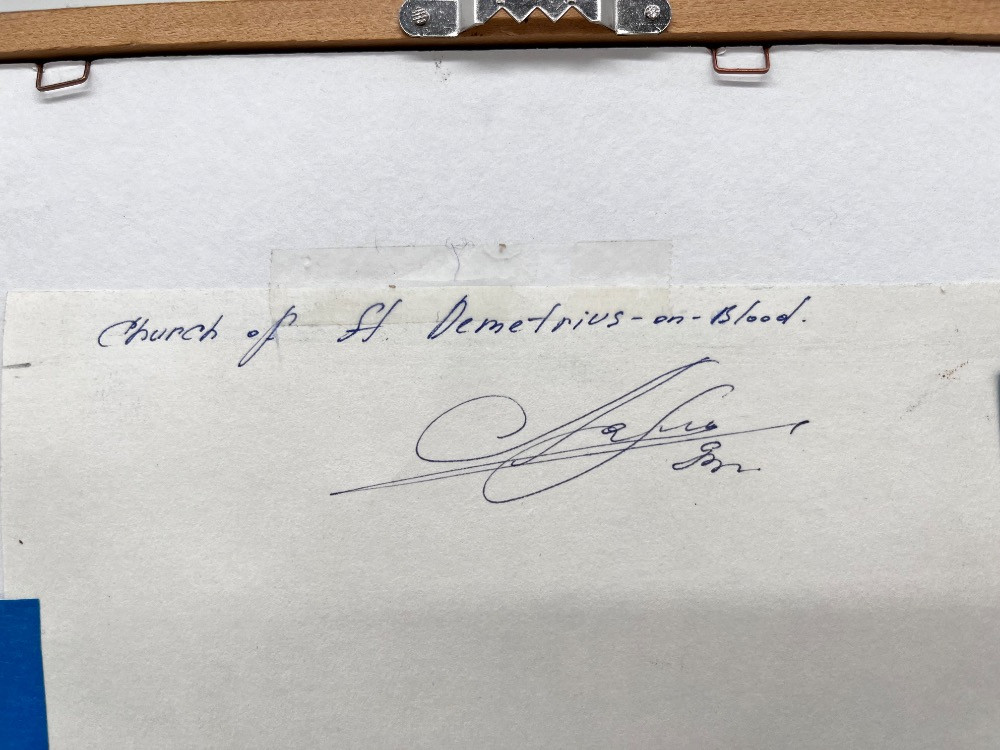 Church of St. Demetrius-on-Blood.